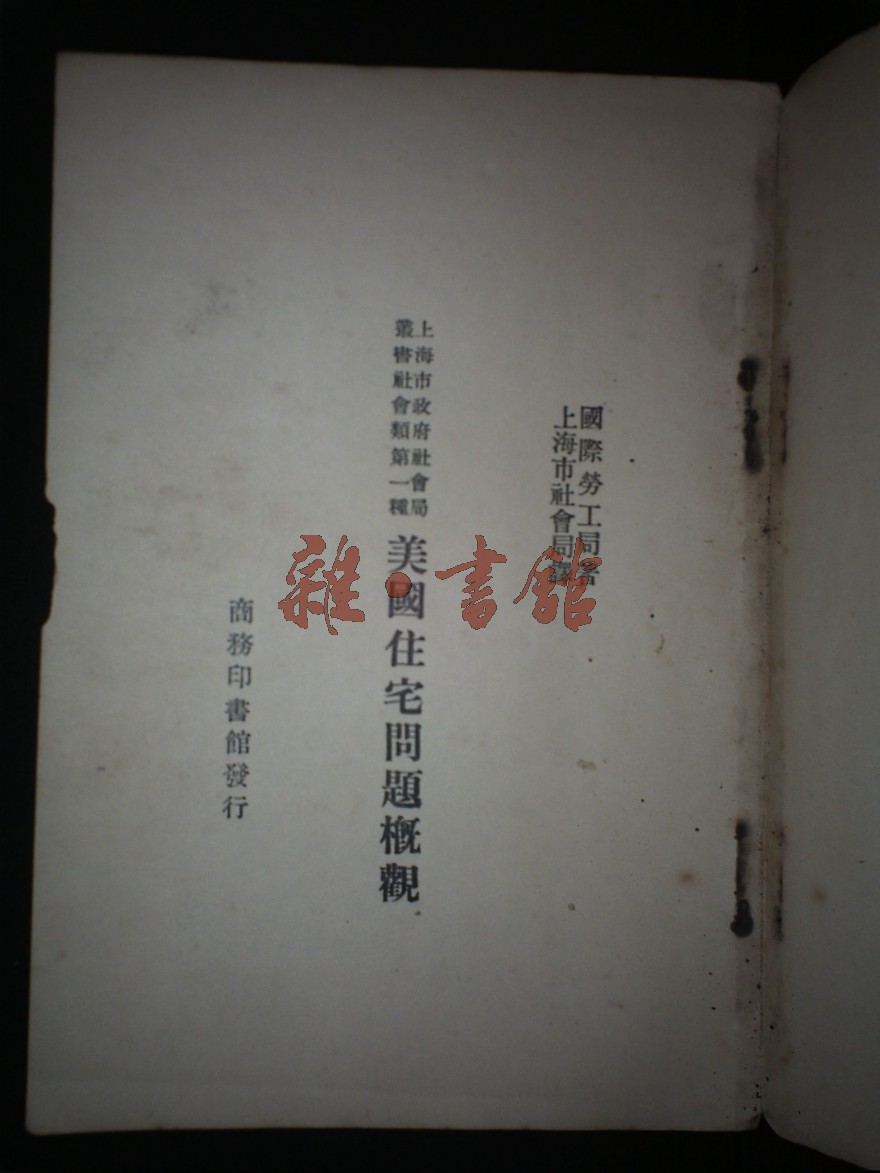 國際勞工局著
上海市社會局譯
上海市政府社會局
叢書社會類第一種
美國住宅問題概觀
商務印書館發行
雜·書館